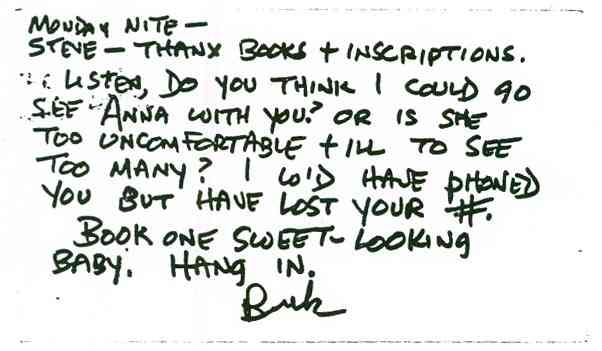 MONDAY NITE —
STEVE — THANX BOOKS + INSCRIPTIONS.
LISTEN, DO YOU THINK I COULD GO
SEE ANNA WITH YOU? OR IS SHE
TOO UNCOMFORTABLE + ILL TO SEE
TOO MANY? I WD HAVE PHONED
YOU BUT HAVE LOST YOUR #.
BOOK ONE SWEET-LOOKING
BABY. HANG IN.